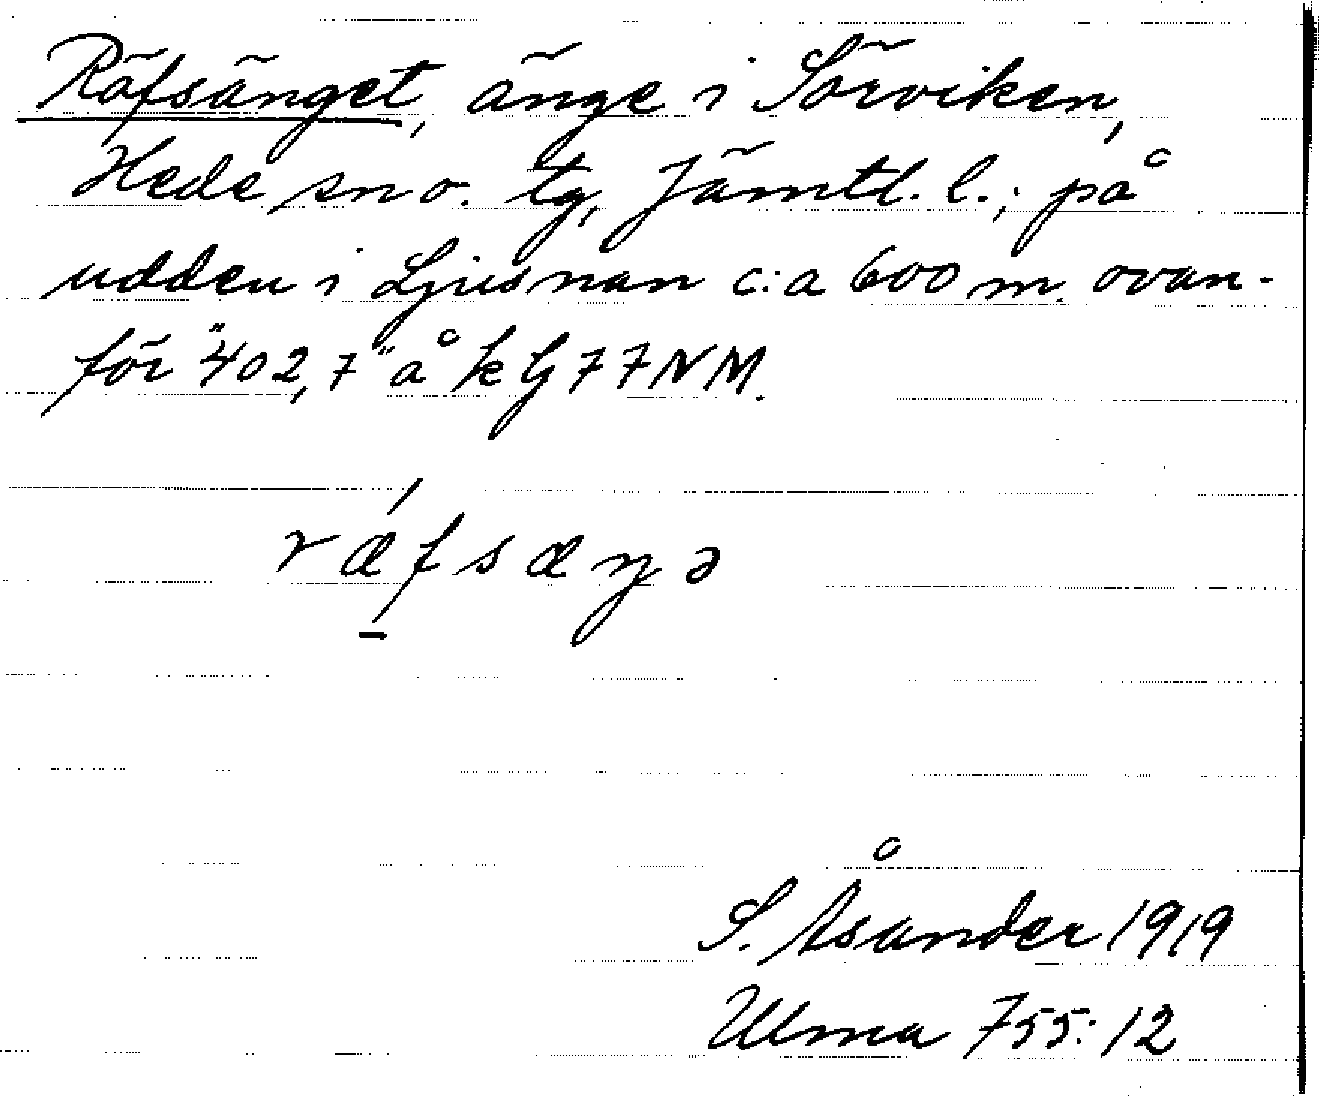 Räfsänget, änge i Sörviken,
Hede sn o. tg, Jämtl. l.; på
udden i Ljusnan c:a 600 m. ovan-
för "402,7" å k G 77 NM.
ræfsæŋə
S. Åsander 1919
Ulma 755:12